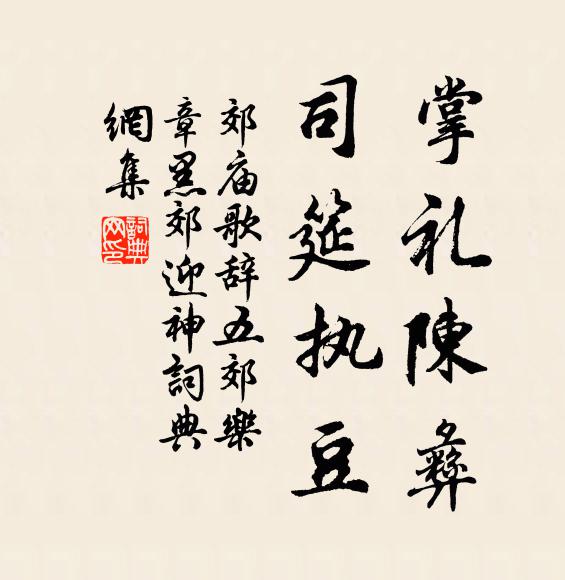 掌礼陳彝
司筵执豆
郊庙歌辞五郊樂
章黑郊迎神詞典
網集
詞典網印